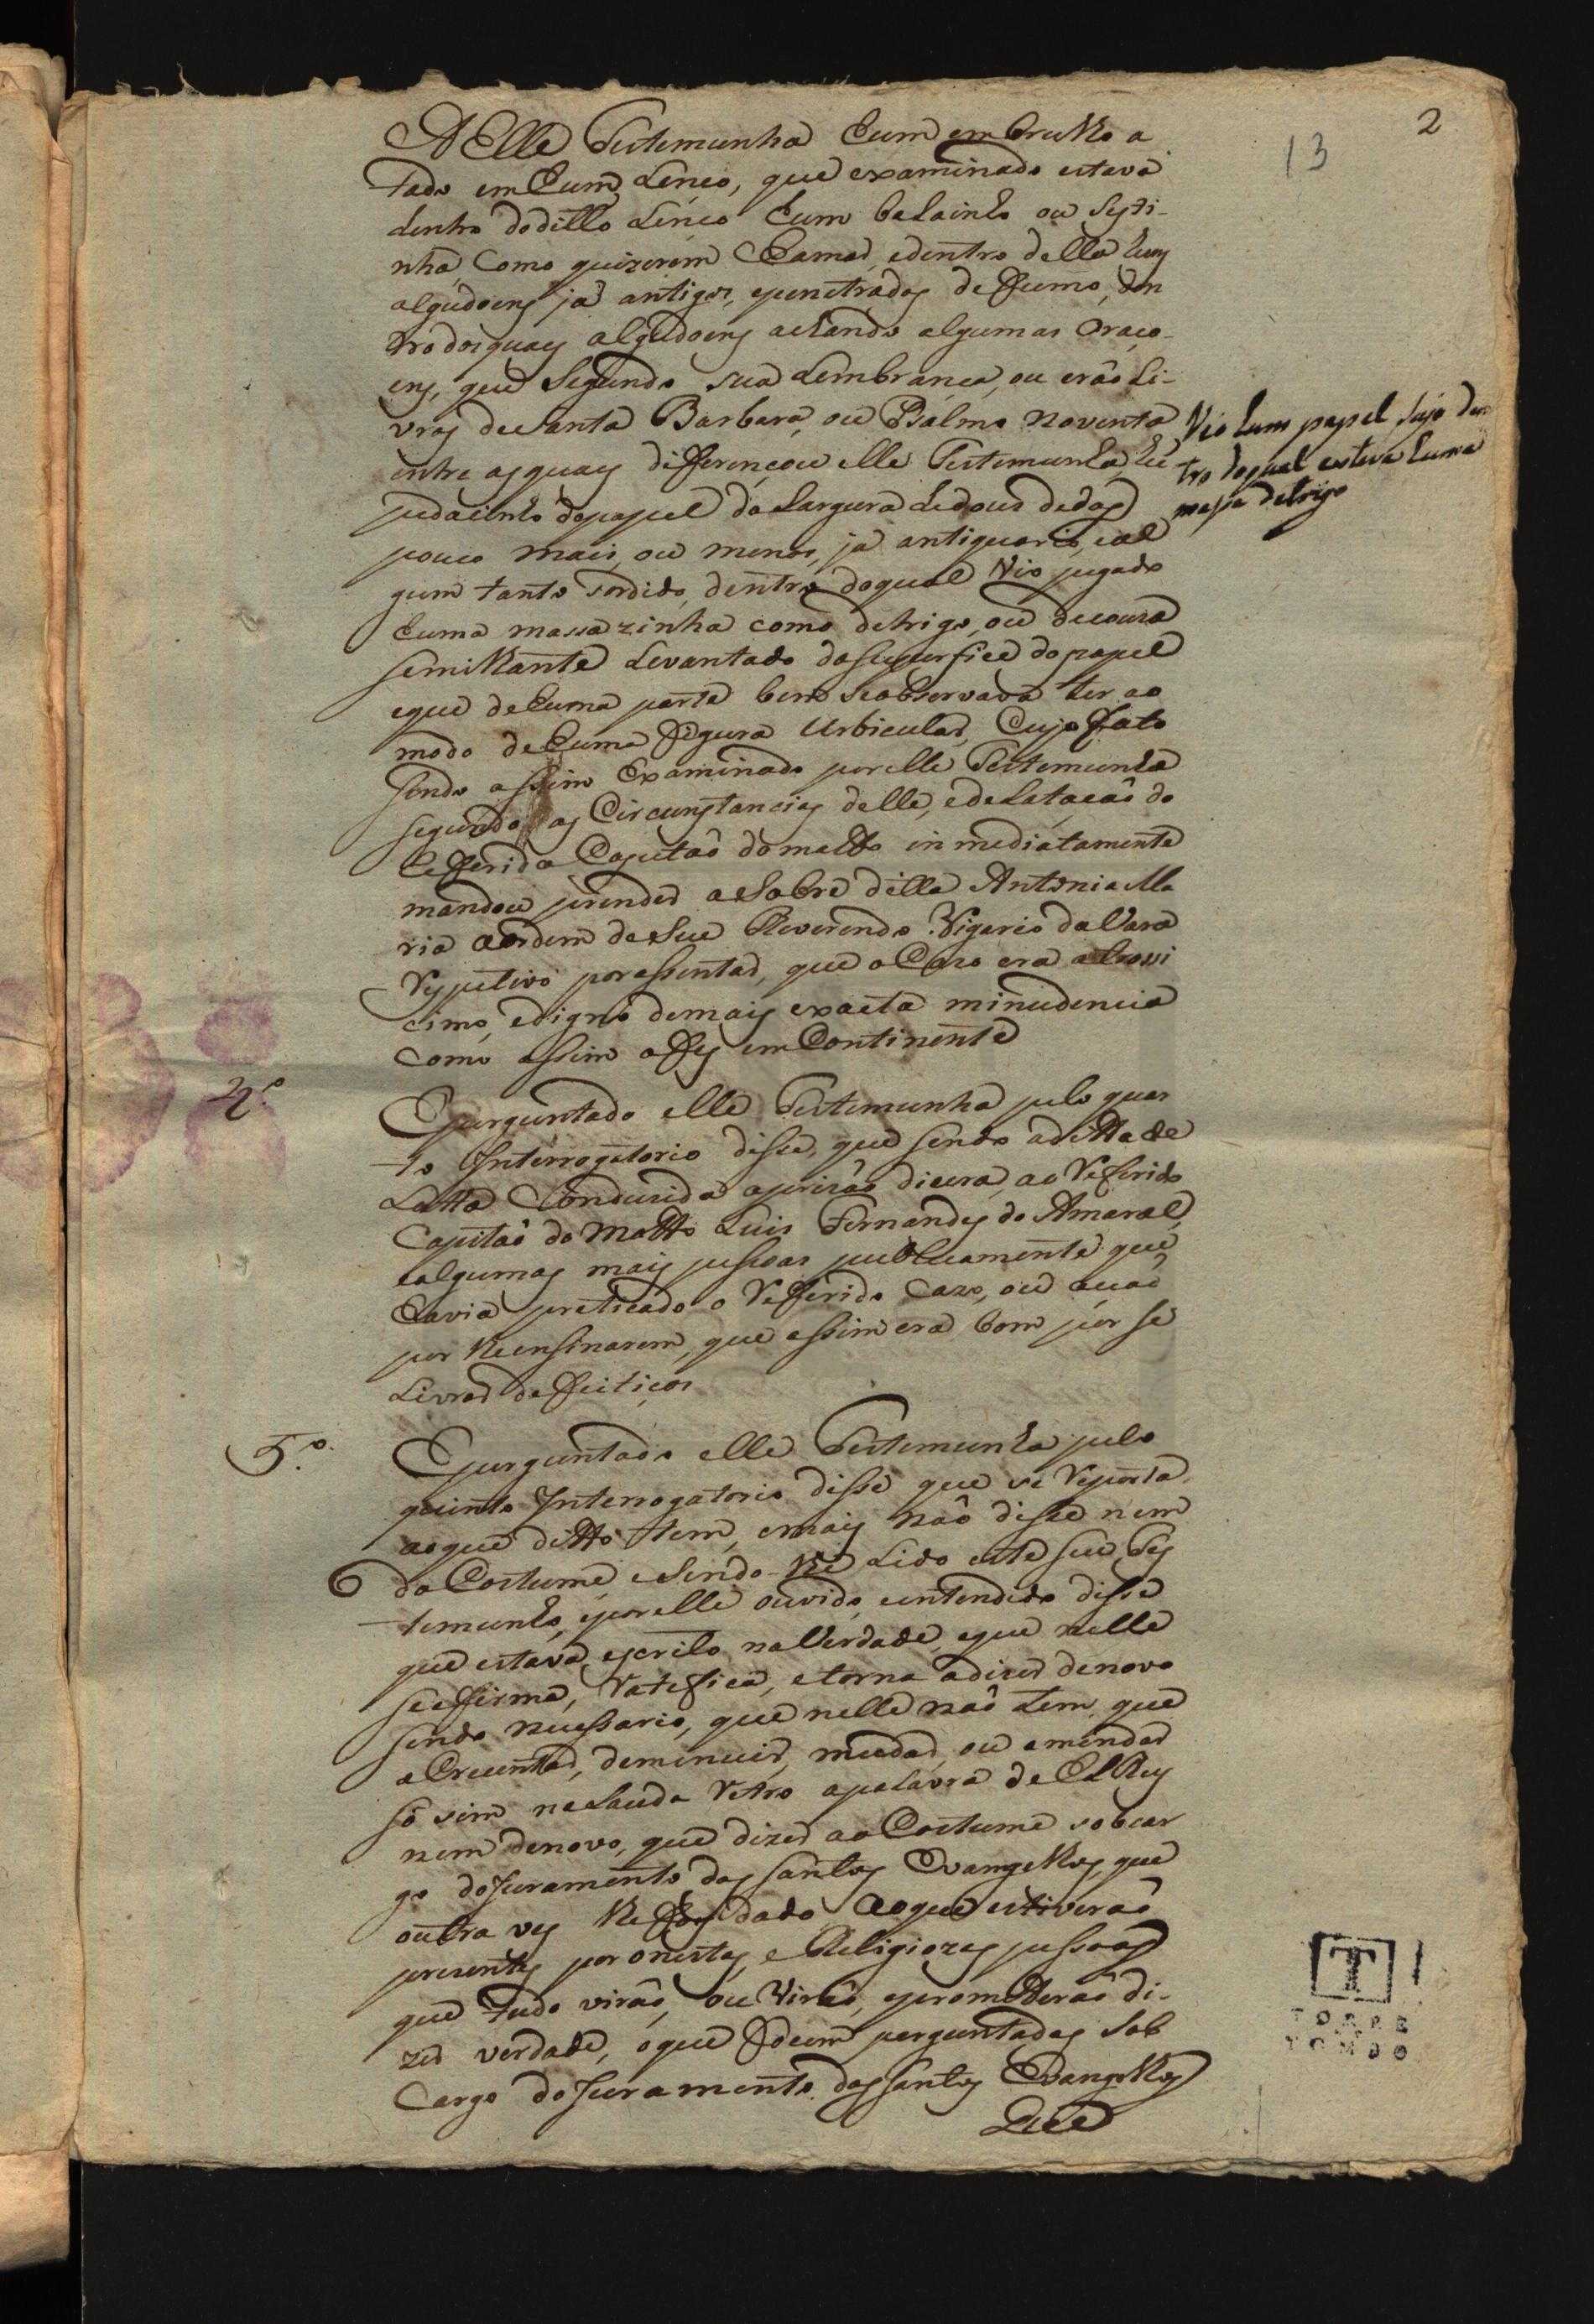 2
13
A Elle Testemunha hum embrulho a
tado em hum Lenço, que examinado estava
dentro do ditto Lenço hum balainho ou Sesti-
nha Como quizerem Chamar, e dentro della huns
algudoens já antigos, epenetrados defumo, den
tro dos quaes algudoens achando algumas Oraço-
ens, que Segundo sua Lembrança, ou erão Li-
vras deSanta Barbara, ou Psalmo noventa
entre as quaes differençou elle Testemunha hũ
pedacinho depapel da Largura dedous dedos
pouco mais, ou menos, já antiguario, eal
gum tanto sordido, dentro doqual Vio pegado
huma massazinha como detrigo, ou decouza
semilhante Levantado dasuperfice dopapel
eque dehuma parte bem seobservava ter ao
modo dehuma Figura Urbicular, Cujo Fato
sendo assim Examinado porelle Testemunha
segundo as Circunstancias delle, edelatação do
Refferido Capitaõ domatto inmediatamente
mandou prender aSobre ditta Antonia Ma
ria aordem deSeu Reverendo Vigario daVara
Respetivo porassentar, que oCazo era atrossi
cimo, edigno demais exacta minudencia
Como assim ofes emContinente
4º
Eperguntado elle Testemunha pelo quar
to Interrogatorio disse, que sendo aditta de
Latta Condusida aprizão dicera ao Referido
Capitaõ do Matto Luis Fernandes do Amaral,
ealgumas mais pessoas publicamente que
havia preticado o Refferido Cazo, ou auçaõ
por lheensinarem, que assim era bom pór se
Livrar defeitiços
5º
Eperguntado elle Testemunha pelo
quinto Interrogatorio disse que se Reporta
aoque ditto tem, emais naõ disse nem
do Costume, eSendo-lhe Lido este seu Tes
temunho, eporelle ouvido, eentendido disse
que estava escrito naVerdade, eque nelle
seaffirma, Ratefica, etorna adizer denovo
sendo necessario, que nelle naõ tem, que
aCrecentar, demenuir, mudar, ou amendar
só sim nalauda Retro apalavra de ElRey
nem denovo, que dizer aoCostume sobcar
go doJuramento dos Santos Evangelhos, que
outra ves lhefoy dado, aoque estiveraõ
prezentes por onestas, e Religiozas pessoas
que tudo viraõ, ou Viraõ, eprometeraõ di-
zer verdade, oque foram perguntados Sob
Cargo doJuramento dosSantos Evangelhos
Que
Vio hum papel sujo den
tro doqual estava huma
massa detrigo
T
TORRE
TOMBO